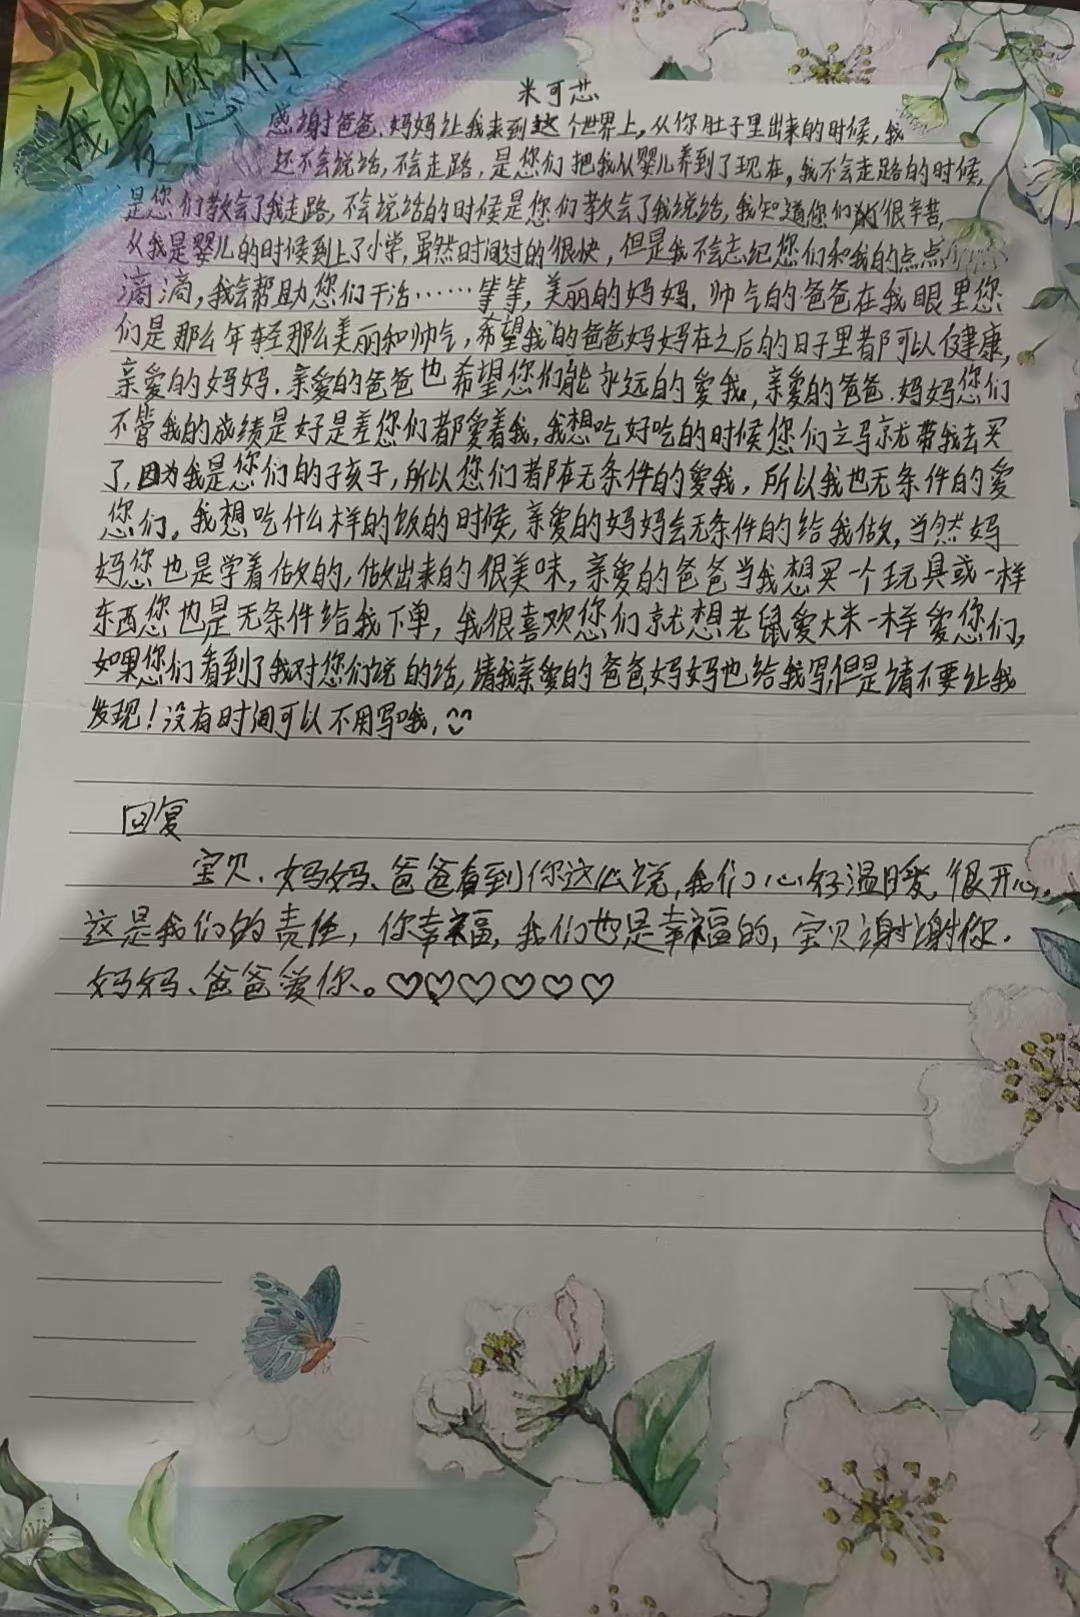 我爱你们
米可芯
感谢爸爸、妈妈让我来到这个世界上,从你肚子里出来的时候,我
还不会说话,不会走路,是您们把我从婴儿养到了现在,我不会走路的时候,
是您们教会了我走路,不会说话的时候是您们教会了我说话,我知道您们很辛苦,
从我是婴儿的时候到上了小学,虽然时间过的很快,但是我不会忘纪您们和我的点点
滴滴,我会帮助您们干活……等等,美丽的妈妈.帅气的爸爸在我眼里您
们是那么年轻那么美丽和帅气,希望我的爸爸妈妈在之后的日子里都可以健康,
亲爱的妈妈.亲爱的爸爸也希望您们能永远的爱我,亲爱的爸爸.妈妈您们
不管我的成绩是好是差您们都爱着我,我想吃好吃的时候您们立马就带我去买
了,因为我是您们的子孩子,所以您们都在无条件的爱我,所以我也无条件的爱
您们。我想吃什么样的饭的时候,亲爱的妈妈会无条件的给我做,当然妈
妈您也是学着做的,做出来的很美味,亲爱的爸爸当我想买一个玩具或一样
东西您也是无条件给我下单,我很喜欢您们就想老鼠爱大米一样爱您们,
如果您们看到了我对您们说的话,请我亲爱的爸爸.妈妈也给我写,但是请不要让我
发现!没有时间可以不用写哦.
回复
宝贝、妈妈、爸爸看到你这么说,我们心好温暖,很开心。
这是我们的责任,你幸福,我们也是幸福的,宝贝谢谢你.
妈妈、爸爸爱你。♡♡♡♡♡♡